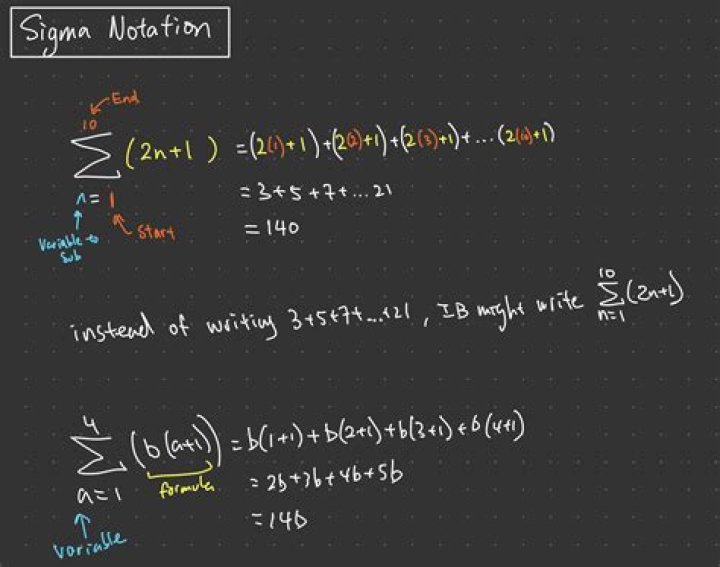 Sigma Notation
End
10
∑ (2n+1) = (2(1)+1)+(2(2)+1)+(2(3)+1)+...(2(10)+1)
n = 1
= 3+5+7+...21
Variable to Sub
Start
= 140
instead of writing 3+5+7+...+21, IB might write ∑_{n=1}^{10}(2n+1)
4
∑ (b(a+1)) = b(1+1)+b(2+1)+b(3+1)+b(4+1)
a=1
formula
= 2b+3b+4b+5b
variable
= 14b